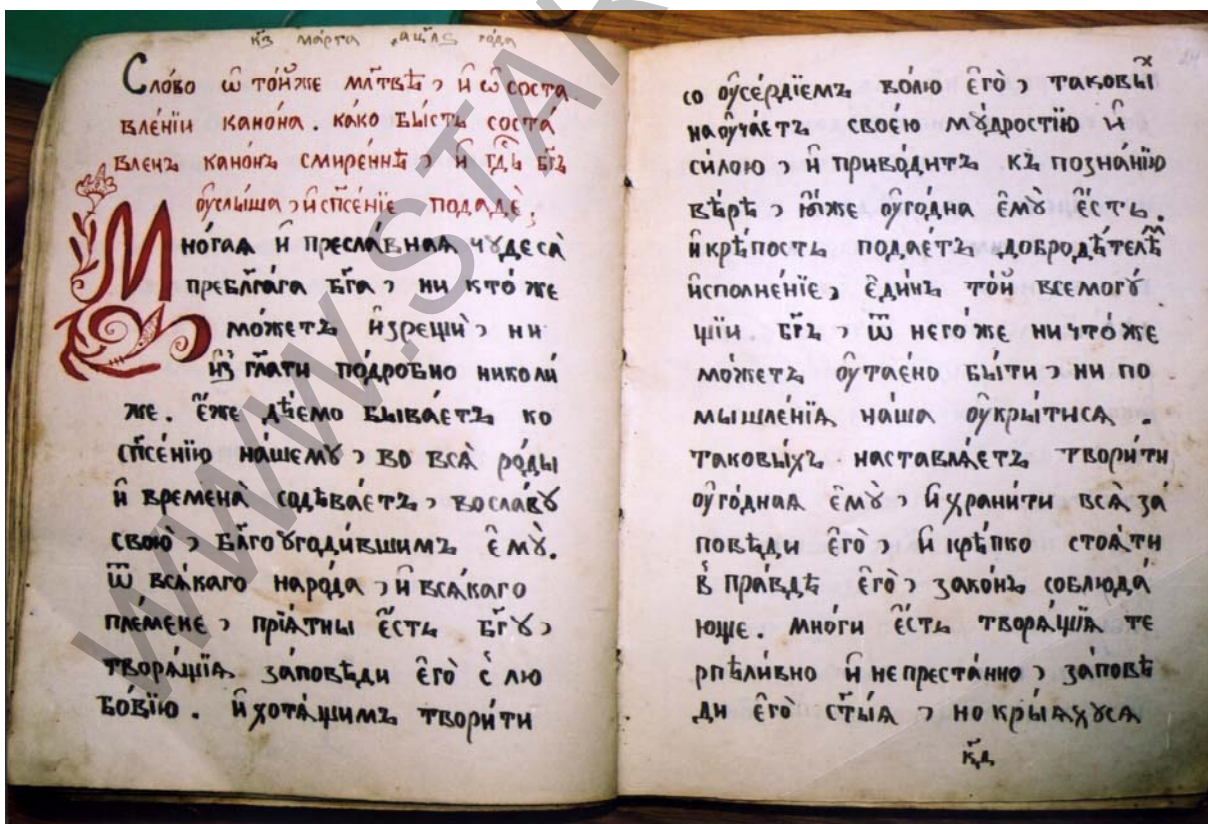 кз марта ҂аѡлѕ года
Сло́во ѡ҆ то́йже мл҃твѣ, и҆ ѡ҆ соста
вле́нїи кано́на. ка́ко бы́сть соста́
вленъ кано́нъ смире́ннѣ, и҆ гдⷭ҇ь бг҃ъ
ᲂу҆слы́ша, и҆ сп҃се́нїе подадѐ,
Мно́гаѧ и҆ пресла́внаѧ чꙋдеса̀
пребл҃га́га бг҃а, ни кто́ же
мо́жетъ и҆зрещѝ, ни
и҆з̾ гл҃ати подро́бно николи́
же. є҆́же дѣ́емо быва́етъ ко
сп҃се́нїю на́шемꙋ, во всѧ̀ ро́ды
и҆ времена̀ содѣва́етъ, во сла́вꙋ
свою̀, бл҃гоꙋгоди́вшимъ є҆мꙋ̀.
ѿ всѧ́каго наро́да, и҆ всѧ́каго
пле́мене, прїѧ́тны є҆́сть бг҃ꙋ,
творѧ́щїѧ за́повѣди є҆гѡ̀ с̾ лю
бо́вїю. и҆ хотѧ́щимъ твори́ти
со ᲂу҆се́рдїемъ во́лю є҆го̀, таковы́ⷯ
наᲂуча́етъ свое́ю мꙋ́дростїю и҆
си́лою и҆ приво́дитъ къ позна́нїю
вѣ́рѣ, ꙗ҆́же ᲂу҆го́дна є҆мꙋ̀ є҆́сть.
и҆ крѣ́пость подае́тъ добродѣ́телѣⷨ
и҆сполне́нїе, є҆ди́нъ то́й всемогꙋ́
щїи бг҃ъ, ѿ него́же ничто́же
мо́жетъ ᲂу҆тае́но бы́ти, ни по
мышле́нїѧ на́ша ᲂу҆кры́тисѧ.
таковы́хъ наставлѧ́етъ твори́ти
ᲂу҆го́днаѧ є҆мꙋ̀, и҆ храни́ти всѧ̀ за́
повѣди є҆го̀, и҆ крѣ́пко стоѧ́ти
в̾ пра́вдѣ є҆го̀, зако́нъ соблюда́
юще. мно́ги є҆́сть творѧ́щїѧ те
рпѣли́вно и҆ непреста́нно, за́повѣ
ди є҆го̀ ст҃ы́ѧ, но кры́ѧхꙋсѧ
к҃д